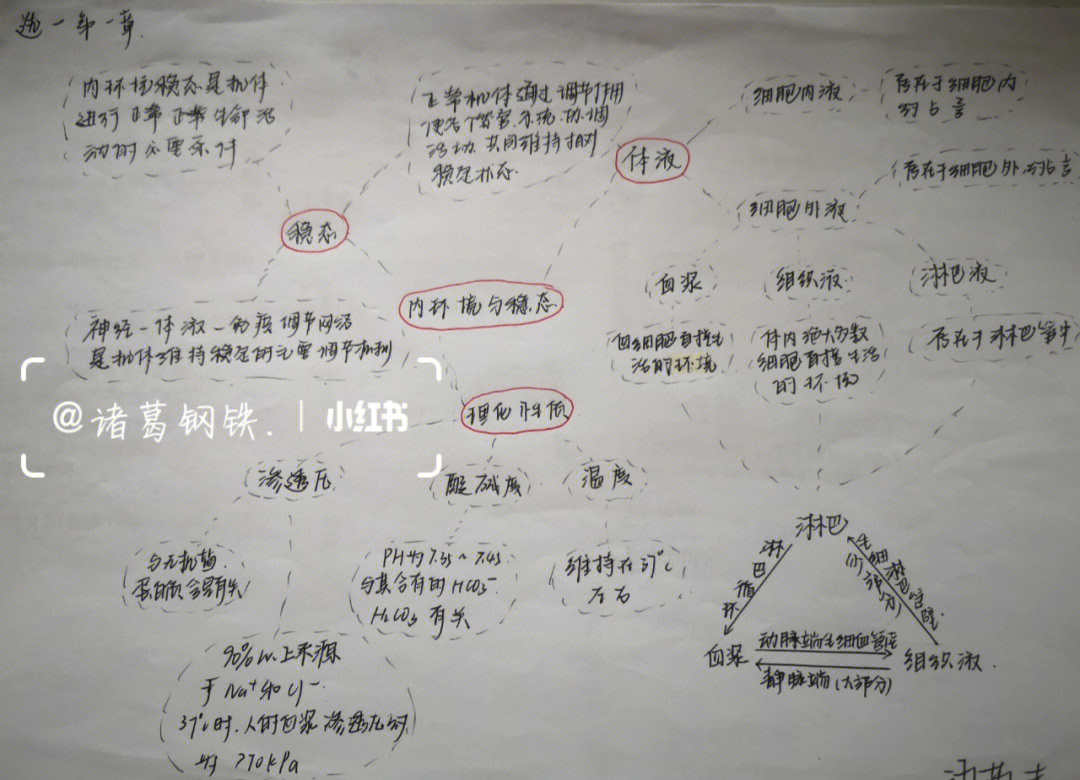 选一第一章.
内环境稳态是机体
进行正常正常生命活
动的必要条件
正常机体通过调节作用
使各个器官.系统.协调
活动.共同维持相对
稳定状态.
细胞内液
存在于细胞内
约占
体液
存在于细胞外.约占
细胞外液
稳态
血浆
组织液
淋巴液
内环境与稳态
神经一体液一免疫调节网络
是机体维持稳定的主要调节机制
血细胞直接生
活的环境
体内绝大多数
细胞直接生活
的环境
存在于淋巴管中
理化性质
@诸葛钢铁.｜小红书
渗透压
酸碱度
温度
与无机盐.
蛋白质含量有关
PH约7.35~7.45
与其含有的HCO₃⁻
H₂CO₃有关
维持在37℃
左右
90%以上来源
于Na⁺和Cl⁻.
37℃时.人的血浆渗透压约
为770kPa
淋巴
淋巴循环
毛细淋巴管壁
(小部分)
血浆
动脉端毛细血管壁
静脉端(大部分)
组织液.